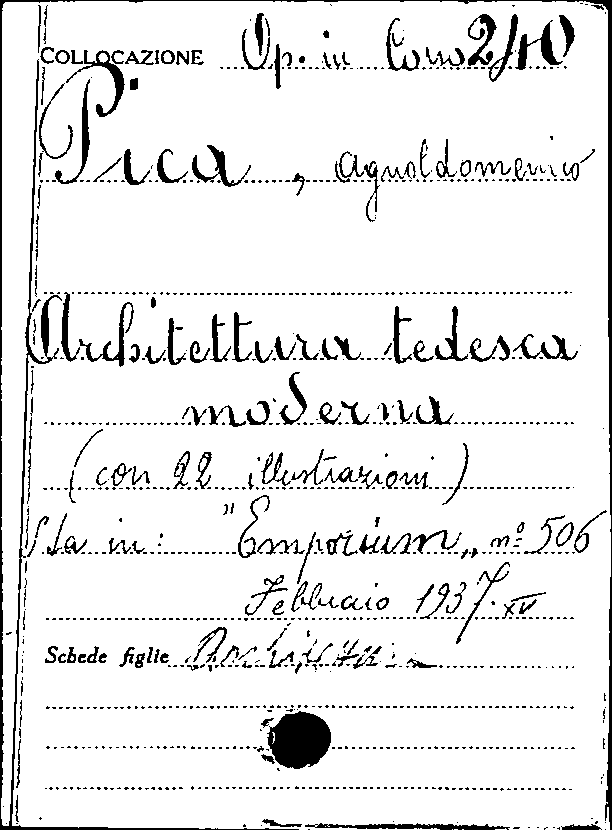 COLLOCAZIONE Op. in Corso 2/40
Pica, Agnoldomenico
Architettura tedesca
moderna
(con 22 illustrazioni)
Sta in: "Emporium" nº 506
Febbraio 1937. XV
Schede figlie